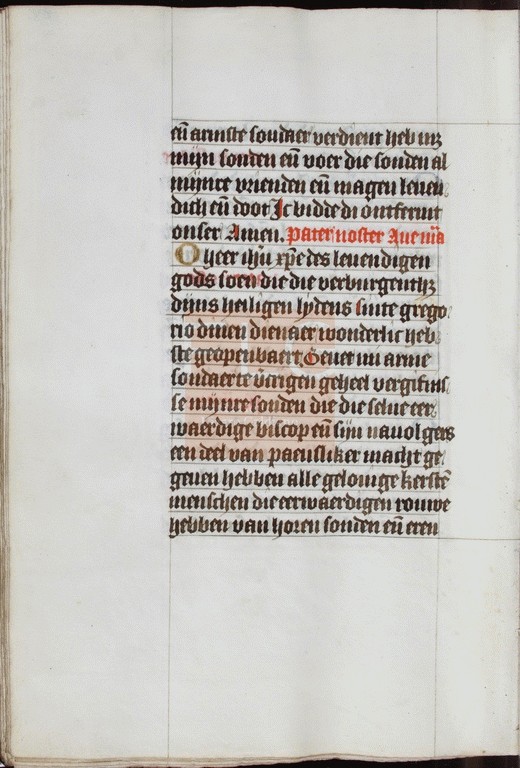 eñ arniste sondaer verdient heb mz
mijn sonden eñ voer die sonden al
mijnre vrienden eñ magen leuen
dich eñ doot Ic bidde di ontfermt
onser Amen. Pater noster Aue mã
O heer ihũ xp̃e des leuendigen
gods soen die die verburgenthz
dijns heiligen lydens sinte grego
rio dinen dienaer wonderlic heb
ste geopenbaert Geuet mi arme
sondaer te v̾crigen geheel vergifnis
se mijnre sonden die die selue eer
waerdige biscop eñ sijn nauolgers
een deel van paeusliker macht ge
geuen hebben alle gelouige kerstẽ
menschen die eerwaerdigen rouwe
hebben van horen sonden eñ eren